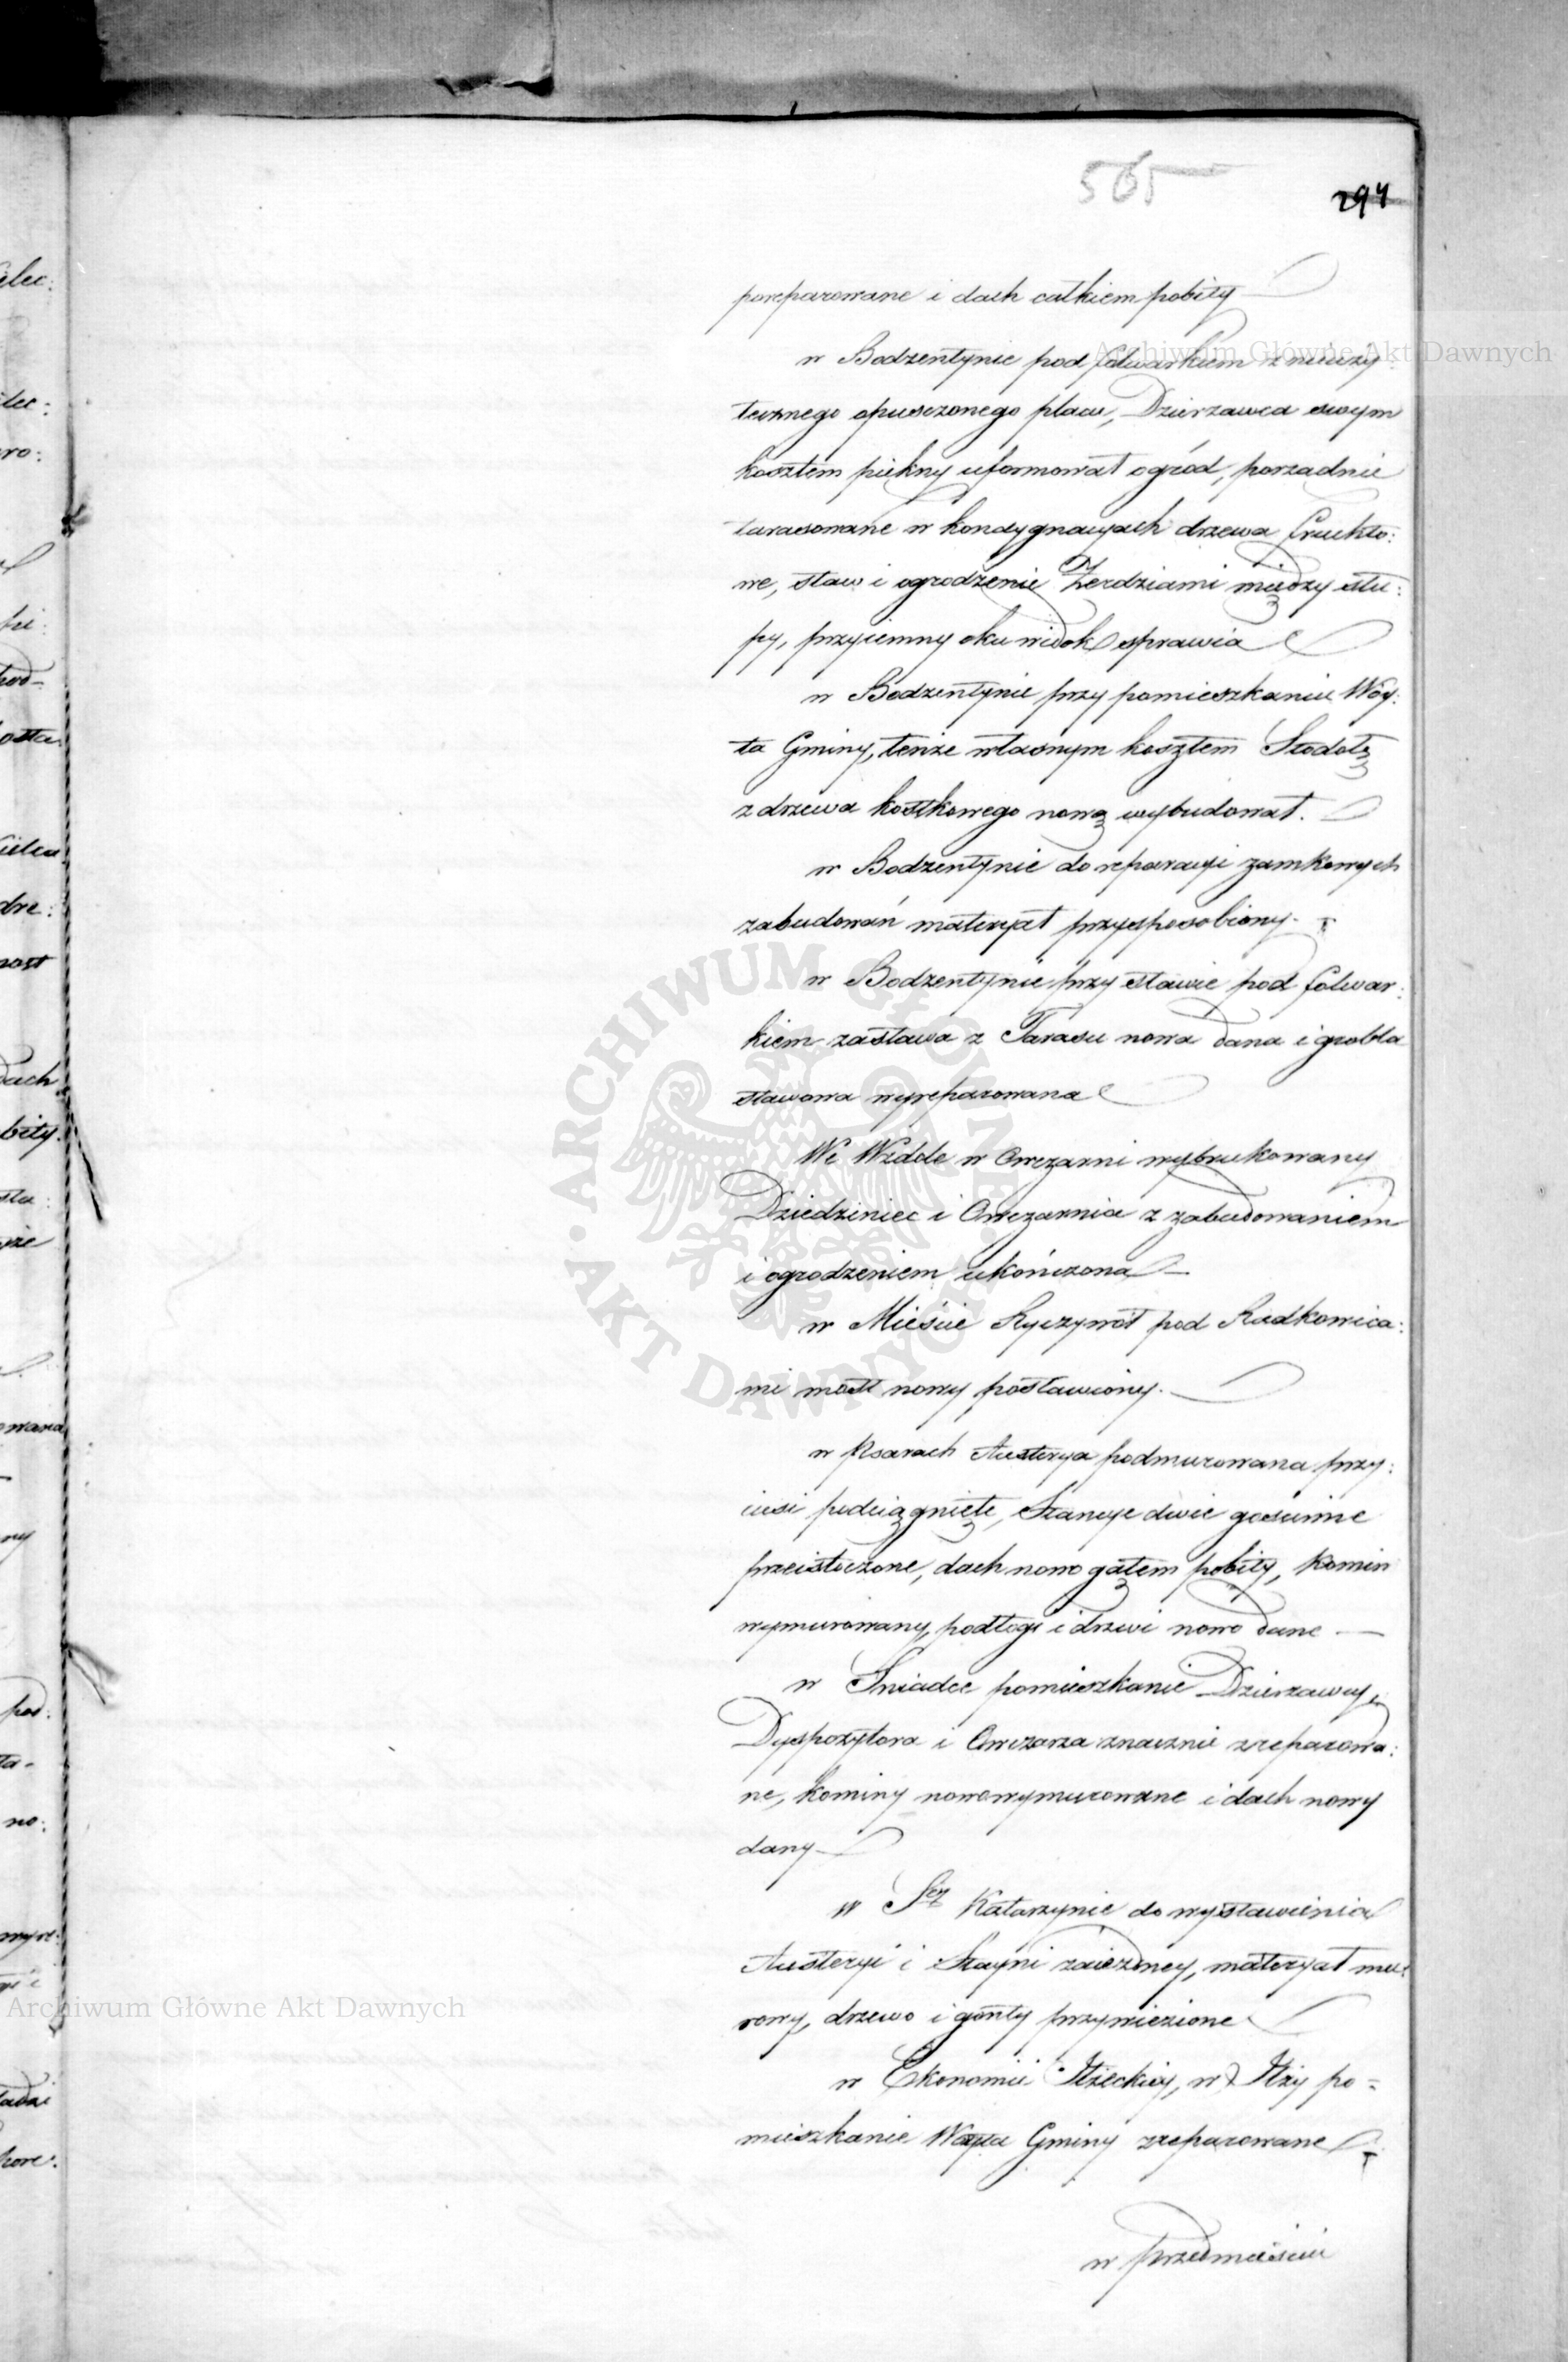 565
294
poreparowane i dach całkiem pobity
w Bodzentynie pod folwarkiem z nieuży
tecznego opuszczonego placu, Dzierzawca swym
kosztem piekny uformował ogród, porzadnie
tarasowane w kondygnacyach drzewa frukto:
we, staw i ogrodzenie Żerdziami między słu:
py, przyiemny oku widok sprawia
w Bodzentynie przy pomieszkaniu Wóy:
ta Gminy, tenże własnym kosztem Stodołę
z drzewa kostkowego nową wybudował.
w Bodzentynie do reparacyi zamkowych
zabudowań materyał przysposobiony.
w Bodzentynie przy stawie pod folwar:
kiem zastawa z Tarasu nowa dana i grobla
stawowa wyreparowana
We Wzdole w Owczarni wybrukowany
Dziedziniec i Owczarnia z zabudowaniem
i ogrodzeniem ukończona
w Mieście Ryczywół pod Radkowica:
mi most nowy postawiony.
w Psarach Austerya podmurowana przy:
ciesi podciągnięte, Stancye dwie gościnne
przeistoczone, dach nowo gątem pobity, Komin
wymurowany, podłogi i drzwi nowo dane
w Sniadce pomieszkanie Dzierzawcy,
Dyspozytora i Owczarza znacznie zreparowa:
ne, kominy nowowymurowane i dach nowy
dany
w Stey Katarzynie do wystawienia
Austeryi i Stayni zaiezdney, materyał mu:
rowy, drzewo i gonty przywiezione
w Ekonomii Iłzeckiey, w Iłzy po=
mieszkanie Woyta Gminy zreparowane
w przedmieściu
Archiwum Główne Akt Dawnych
ARCHIWUM GŁÓWNE
AKT DAWNYCH
Archiwum Główne Akt Dawnych